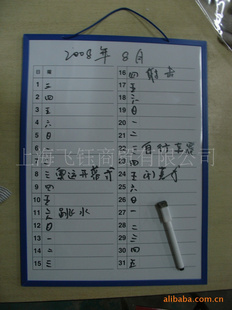 2008年 8月
1 二
2 三
3 四
4 五
5 六
6 日
7
8 三 奥运开幕式
9 四
10 五
11 六 跳水
12 日
13 一
14 二
15 三
16 四
17 五
18 六
19 日
20 一
21 二
22 三 自行车赛
23 四
24 五 闭幕式
25 六
26 日
27 一
28 二
29 三
30 四
31 五
上海飞钰商贸有限公司
alibaba.com.cn